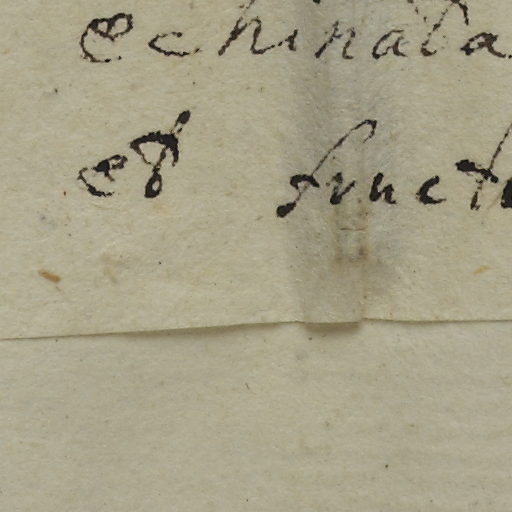 echinata
et fructu